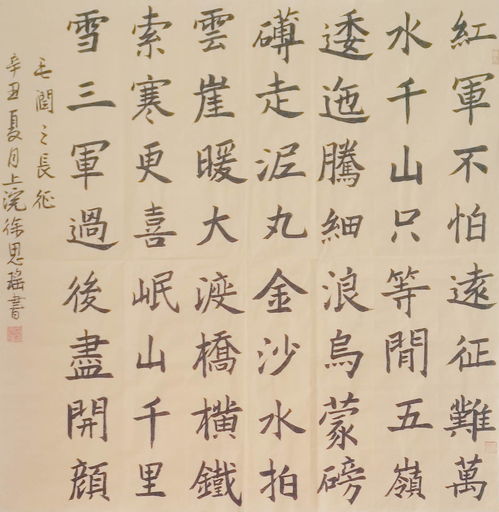 紅軍不怕遠征難萬
水千山只等閒五嶺
逶迤騰細浪烏蒙磅
礴走泥丸金沙水拍
雲崖暖大渡橋橫鐵
索寒更喜岷山千里
雪三軍過後盡開顏
毛潤之長征
辛丑夏月上浣徐思瑤書